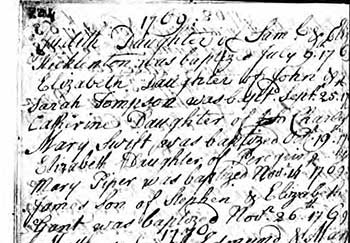 1769.
Judith Daughter of Sam &
was baptizd July 9. 176
Elizabeth Daughter of John &
Sarah Tompson was Bapt Sept. 25. 17
Catherine Daughter of Charles
Mary Swift was baptized Oct. 19. 17
Elizabeth Daughter of
Mary Piper was baptized Nov. 14. 1769
James son of Stephen & Elizabeth
Grant was baptized Nov. 26. 1769
1770
Edmund & Mary